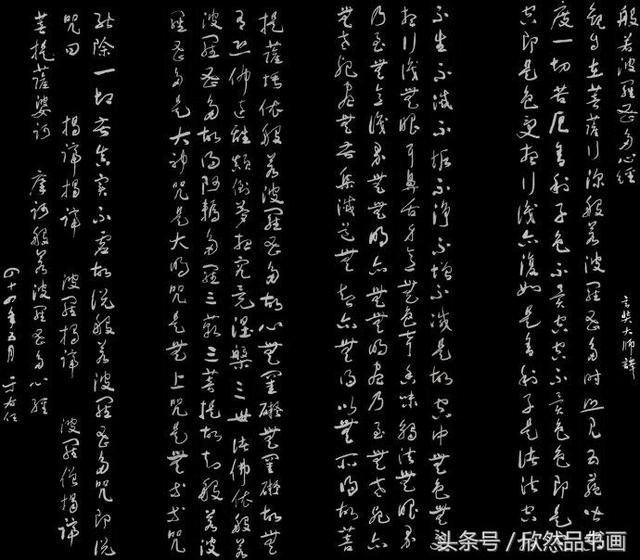 般若波羅蜜多心經
玄奘大師譯
觀自在菩薩行深般若波羅蜜多時照見五蘊皆
度一切苦厄舍利子色不異空空不異色色即是
空即是色受想行識亦復如是舍利子是諸法空
不生不滅不垢不淨不增不減是故空中無色無
想行識無眼耳鼻舌身意無色聲香味觸法無眼界
乃至無意識界無無明亦無無明盡乃至無老死亦
無老死盡無苦集滅道無智亦無得以無所得故菩
提薩埵依般若波羅蜜多故心無罣礙無罣礙故無
有恐怖遠離顛倒夢想究竟涅槃三世諸佛依般若
波羅蜜多故得阿耨多羅三藐三菩提故知般若波
羅蜜多是大神咒是大明咒是無上咒是無等等咒
能除一切苦真實不虛故說般若波羅蜜多咒即說
咒曰 揭諦揭諦 波羅揭諦 波羅僧揭諦
菩提薩婆訶 摩訶般若波羅蜜多心經
四十四年五月 于右任
头条号 / 欣然品书画